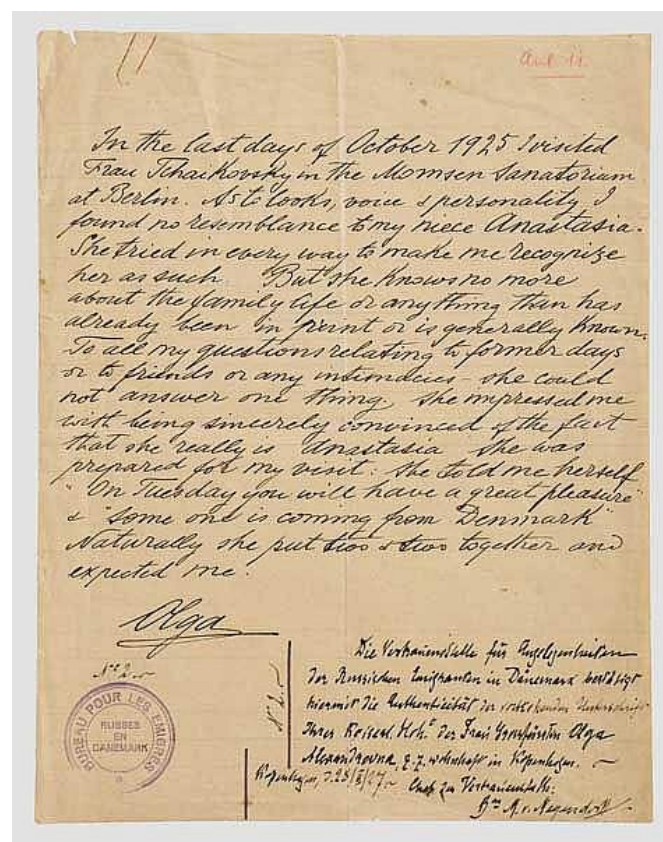 In the last days of October 1925 I visited
Frau Tchaikovsky in the Momsen Sanatorium
at Berlin. As to looks, voice & personality I
found no resemblance to my niece Anastasia.
She tried in every way to make me recognize
her as such. But she knows no more
about the family life or anything than has
already been in print or is generally known.
To all my questions relating to former days
or to friends or any intimacies – she could
not answer one thing. She impressed me
with being sincerely convinced of the fact
that she really is Anastasia she was
prepared for my visit: she told me herself
"On Tuesday you will have a great pleasure"
& "some one is coming from Denmark"
Naturally she put two & two together and
expected me.
Olga
No 2.
BUREAU POUR LES EMIGRÉS
RUSSES
EN
DANEMARK
No 2.
Die Vertrauensstelle für Angelegenheiten
der Russischen Emigranten in Dänemark bestätigt
hiermit die Authenticität der
Ihrer Kaiserl. Hoh. der Frau Grossfürstin Olga
Alexandrovna, z.Z. wohnhaft in Kopenhagen.
Kopenhagen,
Chef der Vertrauensstelle: